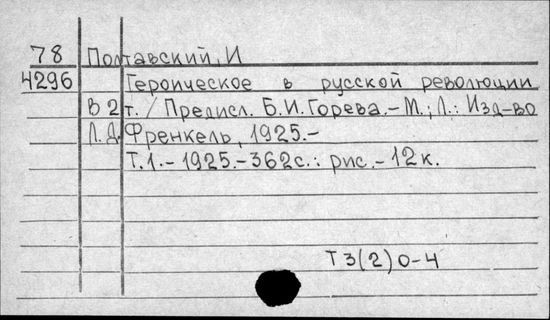 78 Полтавский, И
4296 Героическое в русской революции
В 2 т. / Предисл. Б.И. Горева. – М.; Л.: Изд-во
Л.Д. Френкель, 1925. –
Т.1. – 1925. – 362 с.: рис. – 12 к.
Т3(2)0-4